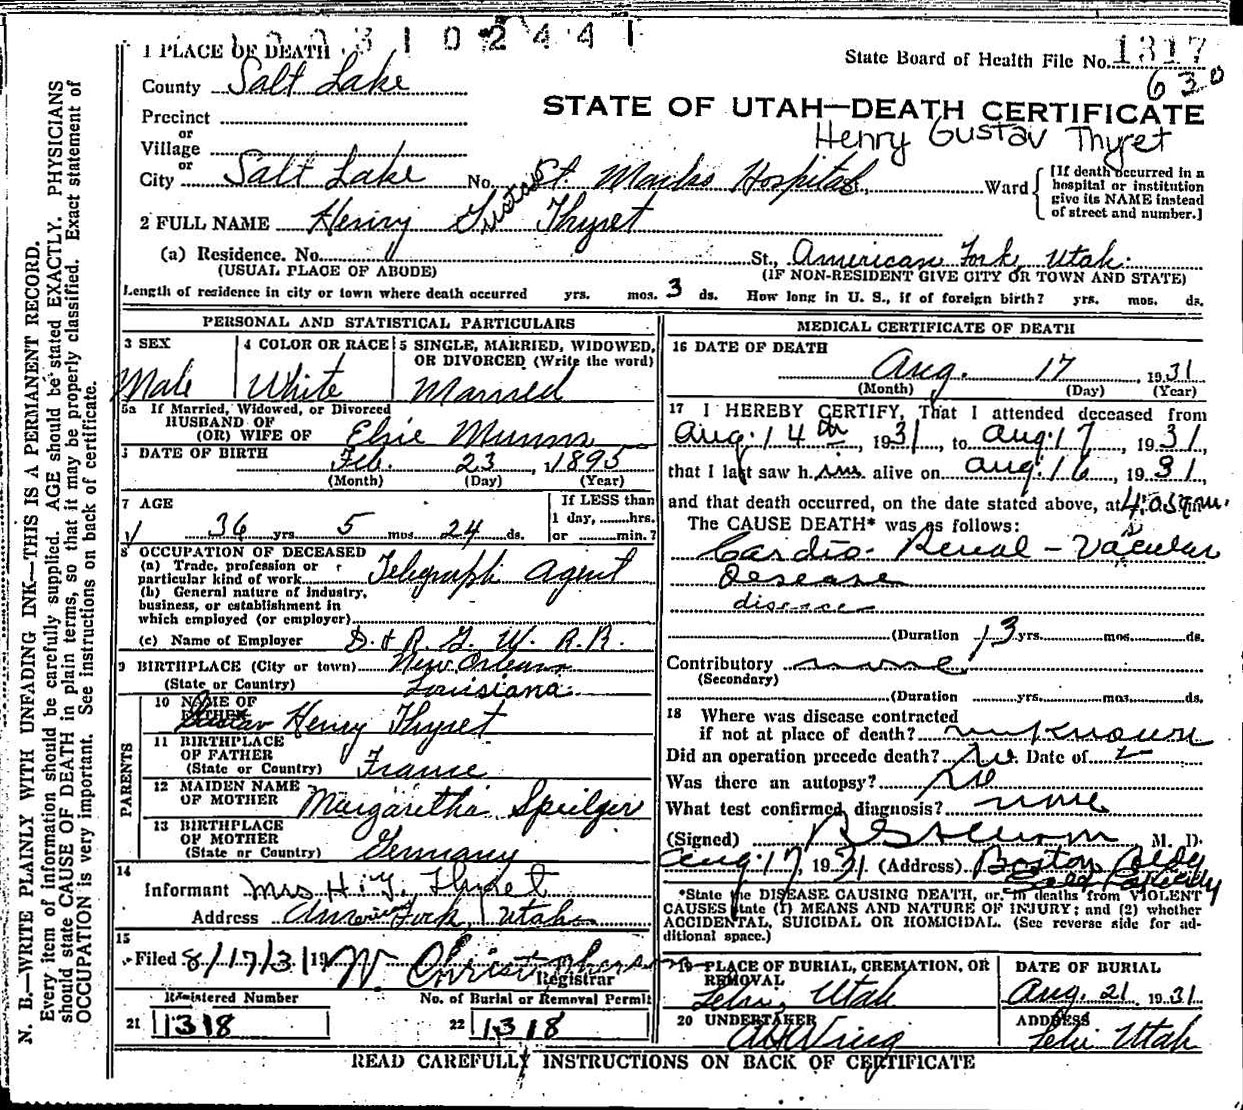 1 PLACE OF DEATH 3 1 0 2 4 4 1
State Board of Health File No. 1317
630
County Salt Lake
STATE OF UTAH—DEATH CERTIFICATE
Precinct
or
Henry Gustav Thyret
Village
or
City Salt Lake No. St. Marks Hospital, Ward
[If death occurred in a hospital or institution give its NAME instead of street and number.]
2 FULL NAME Henry Gustav Thyret
(a) Residence. No. St., American Fork, Utah.
(USUAL PLACE OF ABODE) (IF NON-RESIDENT GIVE CITY OR TOWN AND STATE)
Length of residence in city or town where death occurred yrs. mos. 3 ds. How long in U. S., if of foreign birth? yrs. mos. ds.
PERSONAL AND STATISTICAL PARTICULARS
3 SEX 4 COLOR OR RACE 5 SINGLE, MARRIED, WIDOWED,
OR DIVORCED (Write the word)
Male White Married
5a If Married, Widowed, or Divorced
HUSBAND OF
(OR) WIFE OF Elsie Munns
DATE OF BIRTH Feb. 23, 1895
(Month) (Day) (Year)
7 AGE If LESS than
1 day, hrs.
36 yrs 5 mos 24 ds. or min.?
8 OCCUPATION OF DECEASED
(a) Trade, profession or
particular kind of work Telegraph Agent
(b) General nature of industry,
business, or establishment in
which employed (or employer)
(c) Name of Employer D. & R. G. W. R.R.
9 BIRTHPLACE (City or town) New Orleans
(State or Country) Louisiana
PARENTS
10 NAME OF
FATHER Gustav Henry Thyret
11 BIRTHPLACE
OF FATHER
(State or Country) France
12 MAIDEN NAME
OF MOTHER Margaretha
13 BIRTHPLACE
OF MOTHER
(State or Country) Germany
14
Informant Mrs H. G. Thyret
Address American Fork Utah
15
Filed 8/17/31 19 W. Christophers
Registrar
Registered Number No. of Burial or Removal Permit
21 1318 22 1318
MEDICAL CERTIFICATE OF DEATH
16 DATE OF DEATH
Aug. 17, 1931
(Month) (Day) (Year)
17 I HEREBY CERTIFY, That I attended deceased from
Aug. 14th, 1931, to Aug. 17, 1931,
that I last saw him alive on Aug. 16, 1931,
and that death occurred, on the date stated above, at
The CAUSE DEATH* was as follows:
Cardio-Renal-Vascular
Desease
disease
(Duration 13 yrs. mos. ds.
Contributory none
(Secondary)
(Duration yrs. mos. ds.
18 Where was disease contracted
if not at place of death? unknown
Did an operation precede death? No. Date of
Was there an autopsy? No
What test confirmed diagnosis? none
(Signed) M. D.
Aug. 17, 1931 (Address) Boston Bldg
Salt Lake City
*State the DISEASE CAUSING DEATH, or, in deaths from VIOLENT
CAUSES state (1) MEANS AND NATURE OF INJURY; and (2) whether
ACCIDENTAL, SUICIDAL OR HOMICIDAL. (See reverse side for ad-
ditional space.)
19 PLACE OF BURIAL, CREMATION, OR
REMOVAL
Lehi, Utah
DATE OF BURIAL
Aug. 21 1931
20 UNDERTAKER ADDRESS
Wing Lehi Utah
READ CAREFULLY INSTRUCTIONS ON BACK OF CERTIFICATE
N. B.—WRITE PLAINLY WITH UNFADING INK—THIS IS A PERMANENT RECORD.
Every item of information should be carefully supplied. AGE should be stated EXACTLY. PHYSICIANS
should state CAUSE OF DEATH in plain terms, so that it may be properly classified. Exact statement of
OCCUPATION is very important. See instructions on back of certificate.